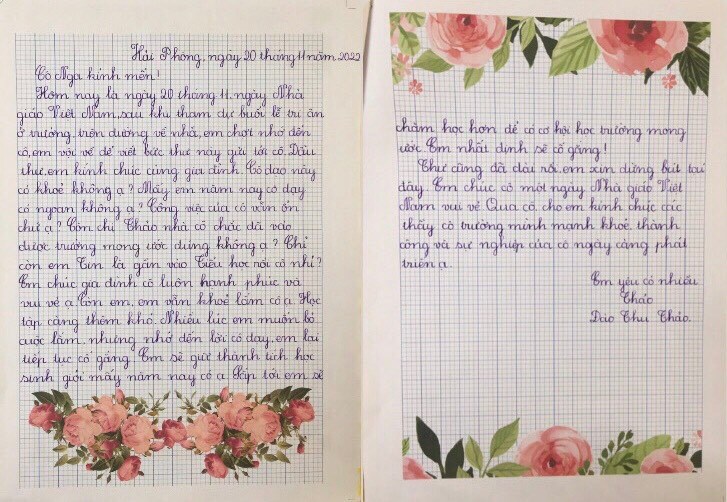 Hải Phòng, ngày 20 tháng 11 năm 2022
Cô Nga kính mến!
Hôm nay là ngày 20 tháng 11, ngày Nhà
giáo Việt Nam, sau khi tham dự buổi lễ tri ân
ở trường, trên đường về nhà, em chợt nhớ đến
cô, em vội về để viết bức thư này gửi tới cô. Đầu
thư, em kính chúc cùng gia đình. Cô dạo này
có khoẻ không ạ? Mấy em năm nay cô dạy
có ngoan không ạ? Công việc của cô vẫn ổn
chứ ạ? Còn chị Thảo nhà cô chắc đã vào
được trường mong ước đúng không ạ? Thì
còn em Tin là gần vào Tiểu học rồi cô nhỉ?
Em chúc gia đình cô luôn hạnh phúc và
vui vẻ ạ. Còn em, em vẫn khoẻ lắm cô ạ. Học
tập càng thêm khó. Nhiều lúc em muốn bỏ
cuộc lắm, nhưng nhớ đến lời cô dạy, em lại
tiếp tục cố gắng. Em sẽ giữ thành tích học
sinh giỏi mấy năm nay cô ạ. Sắp tới em sẽ
chăm học hơn để có cơ hội học trường mong
ước. Em nhất định sẽ cố gắng!
Thư cũng đã dài rồi, em xin dừng bút tại
đây. Em chúc cô một ngày Nhà giáo Việt
Nam vui vẻ. Qua cô, cho em kính chúc các
thầy cô trường mình mạnh khoẻ, thành
công và sự nghiệp của cô ngày càng phát
triển ạ.
Em yêu cô nhiều
Thảo
Đào Thu Thảo.